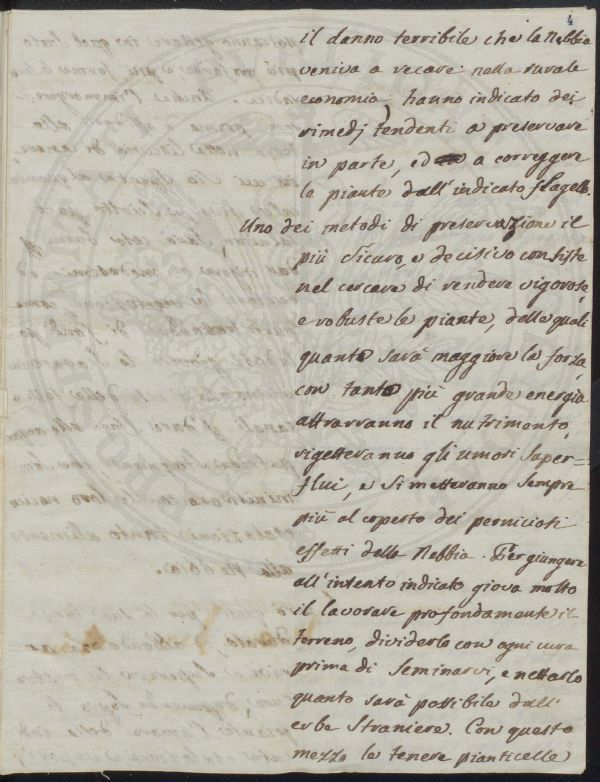 4
il danno terribile che la Nebbia
veniva a recare nella rurale
economia hanno indicato dei
rimedj tendenti a preservare
in parte, ed a correggere
le piante dall'indicato flagello.
Uno dei metodi di preservazione il
più sicuro, e decisivo consiste
nel cercare di rendere vigorose,
e robuste le piante, delle quali
quanto sarà maggiore la forza,
con tanto più grande energia
attrarranno il nutrimento,
rigetteranno gli umori super=
flui, e si metteranno sempre
più al coperto dei perniciosi
effetti della Nebbia. Per giungere
all'intento indicato giova molto
il lavorare profondamente il
terreno, dividerlo con ogni cura
prima di seminarvi, e nettarlo
quanto sarà possibile dall'
erbe straniere. Con questo
mezzo le tenere pianticelle